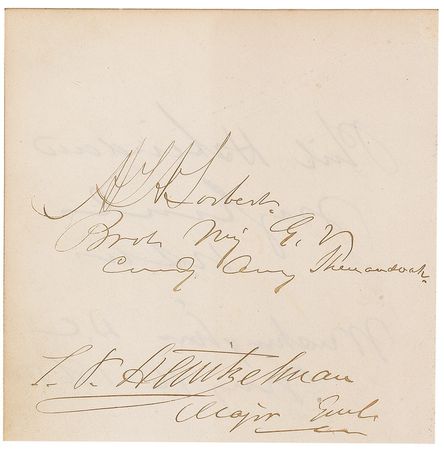 A T A Torbert
Brvt. Maj G. V
Comdg Army Shenandoah
S. P. Heintzelman
Major Genl.